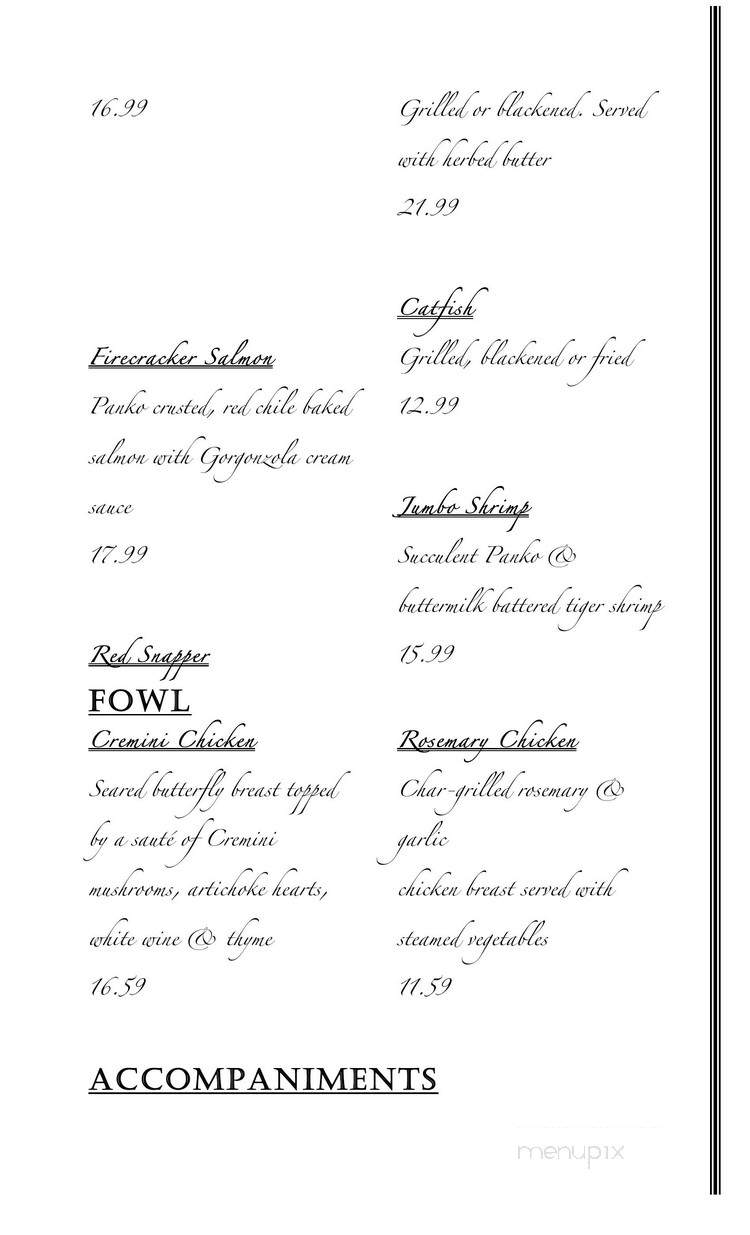 16.99
Firecracker Salmon
Panko crusted, red chile baked
salmon with Gorgonzola cream
sauce
17.99
Red Snapper
Grilled or blackened. Served
with herbed butter
21.99
Catfish
Grilled, blackened or fried
12.99
Jumbo Shrimp
Succulent Panko &
buttermilk battered tiger shrimp
15.99
FOWL
Cremini Chicken
Seared butterfly breast topped
by a sauté of Cremini
mushrooms, artichoke hearts,
white wine & thyme
16.59
Rosemary Chicken
Char-grilled rosemary &
garlic
chicken breast served with
steamed vegetables
11.59
ACCOMPANIMENTS
menupix